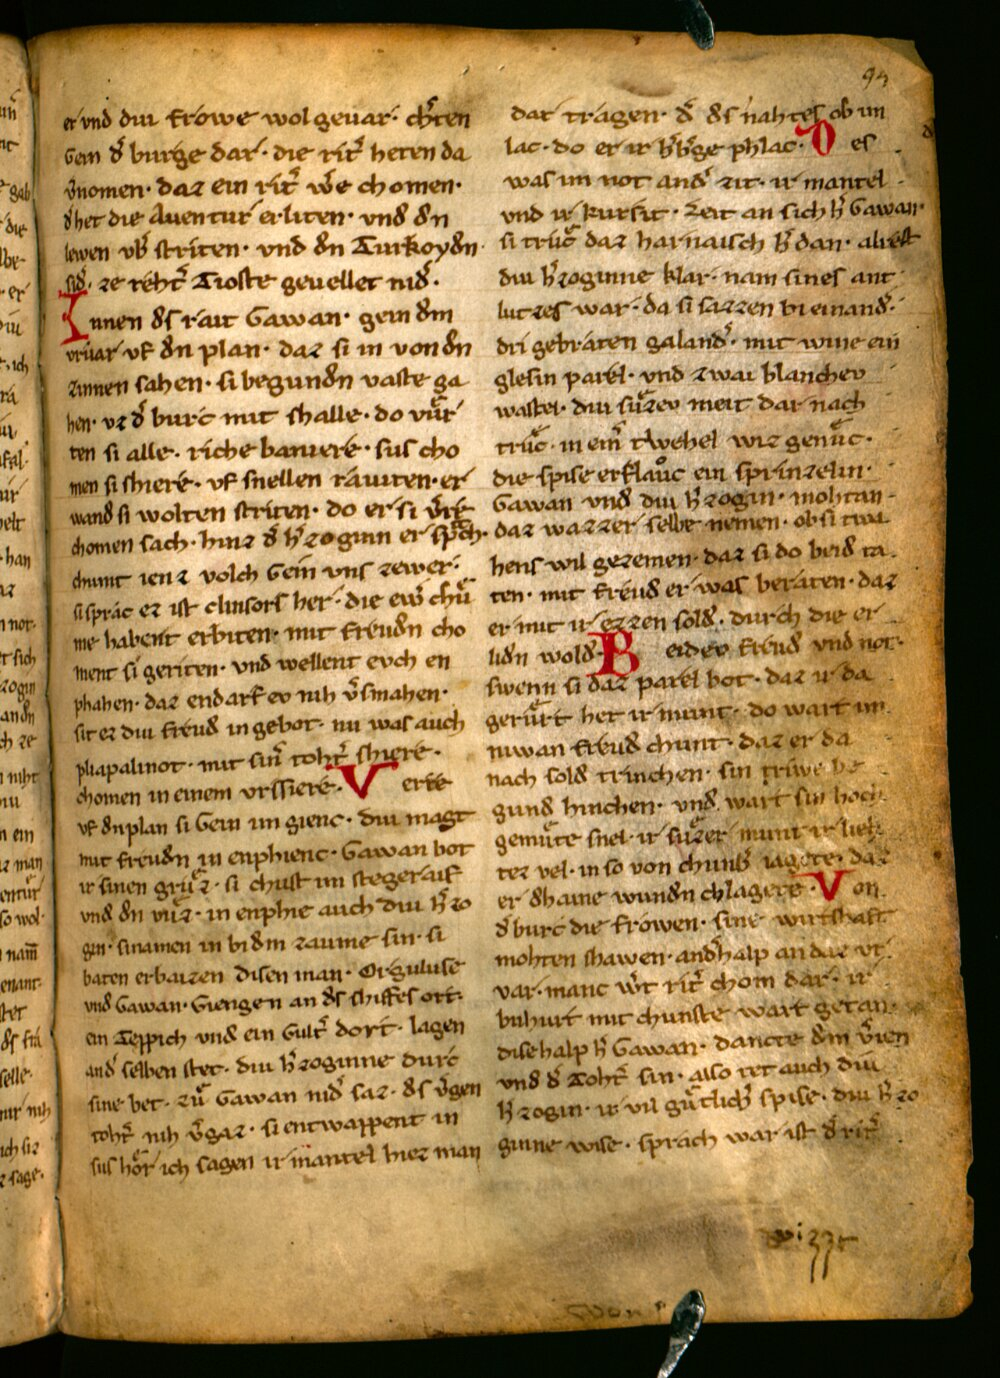 94
er vnd diu frowe wol geuar · ch̄ten
Gein d̾ burge dar · die rit̾ heten da
v̾nomen · daz ein rit̾ w̾e chomen ·
d̾ het die Auentur̾ erliten · vnd̾ dn̄
lewen vb̾ striten · vnd dn̄ Turkoydn̄ ·
sid̾ · ze reht̾ Tioste geuellet nid̾ ·
Innen ds̾ rait Gawan · gein dm̄
vruar vf dn̄ plan · daz si in von dn̄
zinnen sahen · si begundn̄ vaste ga
hen · vz d̾ burc mit shalle · do vuͦr
ten si alle · riche baniere · sus cho
men si shiere · vf snellen raviten · er
wand si wolten striten · do er si v̾re
chomen sach · hinz d̾ h̾zoginn er sp̾ch ·
chumt ienz volch Gein vns zewer ·
si sprac ez ist clinsors her · die ew̾ chuͦ
me habent erbiten · mit freudn̄ cho
ment si geriten · vnd wellent evch en
phahen · daz endarf ev nih v̾smahen ·
sit ez diu freud in gebot · nu was auch
pliapalinot · mit sin̾ toht̾ shiere ·
chomen in einem vrssiere · V erre
vf dn̄ plan si Gein im gienc · diu magt
mit freudn̄ in enphienc · Gawan bot
ir sinen gruͦz · si chust im stegeraif
vnd dn̄ vuͦz · in enphie auch diu h̾zo
gin · si namen in bi dm̄ zaume sin · si
baten erbaizen disen man · Origuluse
vnd Gawan · Giengen an ds̾ shiffes ort ·
ein Teppich vnd ein Gult̾ dort · lagen
and̾ selben stet · diu h̾zoginne durc
sine bet · zuͦ Gawan nid̾ saz · ds̾ v̾gen
toht̾ nih v̾gaz · si entwappent in
sus hoͤr ich sagen ir mantel hiez man
dar tragen · d̾ ds̾ nahtes ob im
lac · do er ir h̾b̾ge phlac · D es
was im not and̾ zit · ir mantel
vnd ir kursit · zeit an sich h̾ Gawan ·
si truͦc daz harnaisch h̾ dan · alrest
diu h̾zoginne klar · nam sines ant
lutzes war · da si sazzen bi einand̾ ·
dri gebraten galand̾ · mit wine ein
glesin parel · vnd zwai blanchev
wastel · diu suͦzev meit dar nach
truͦc · in ein̾ twehel wiz genuͦc ·
die spise erflauͦc ein sprinzelin ·
Gawan vnd diu h̾zogin · mohtan
daz wazzer selbe nemen · ob si twa
hens wil gezemen · daz si do beid̾ ta
ten · mit freud̾ er was beraten · daz
er mit ir ezzen sold̾ · durch die er
lidn̄ wold̾ · B eidev freud̾ vnd not ·
swenn si daz parel bot · daz ir da
geruͦrt het ir munt · do wart im
niwan freud̾ chunt · daz er da
nach sold̾ trinchen · sin triwe be
gund̾ hinchen · vnd wart sin hoch
gemuͤte snel · ir suͦzer munt ir lieh
tez vel · in so von chumb̾ iagete · daz
er dhaine wundn̄ chlagete · V on
d̾ burc die frowen · sine wirtshaft
mohten shawen · and̾halp an daz vr
var · manc w̾t rit̾ chom dar · ir
buhurt mit chunste wart getan ·
disehalp h̾ Gawan · dancte dm̄ v̾ien
vnd d̾ Toht̾ sin · also tet auch diu
h̾zogin · ir vil guͤtlich̾ spise · diu h̾zo
ginne wise · sprach war ist d̾ rit̾